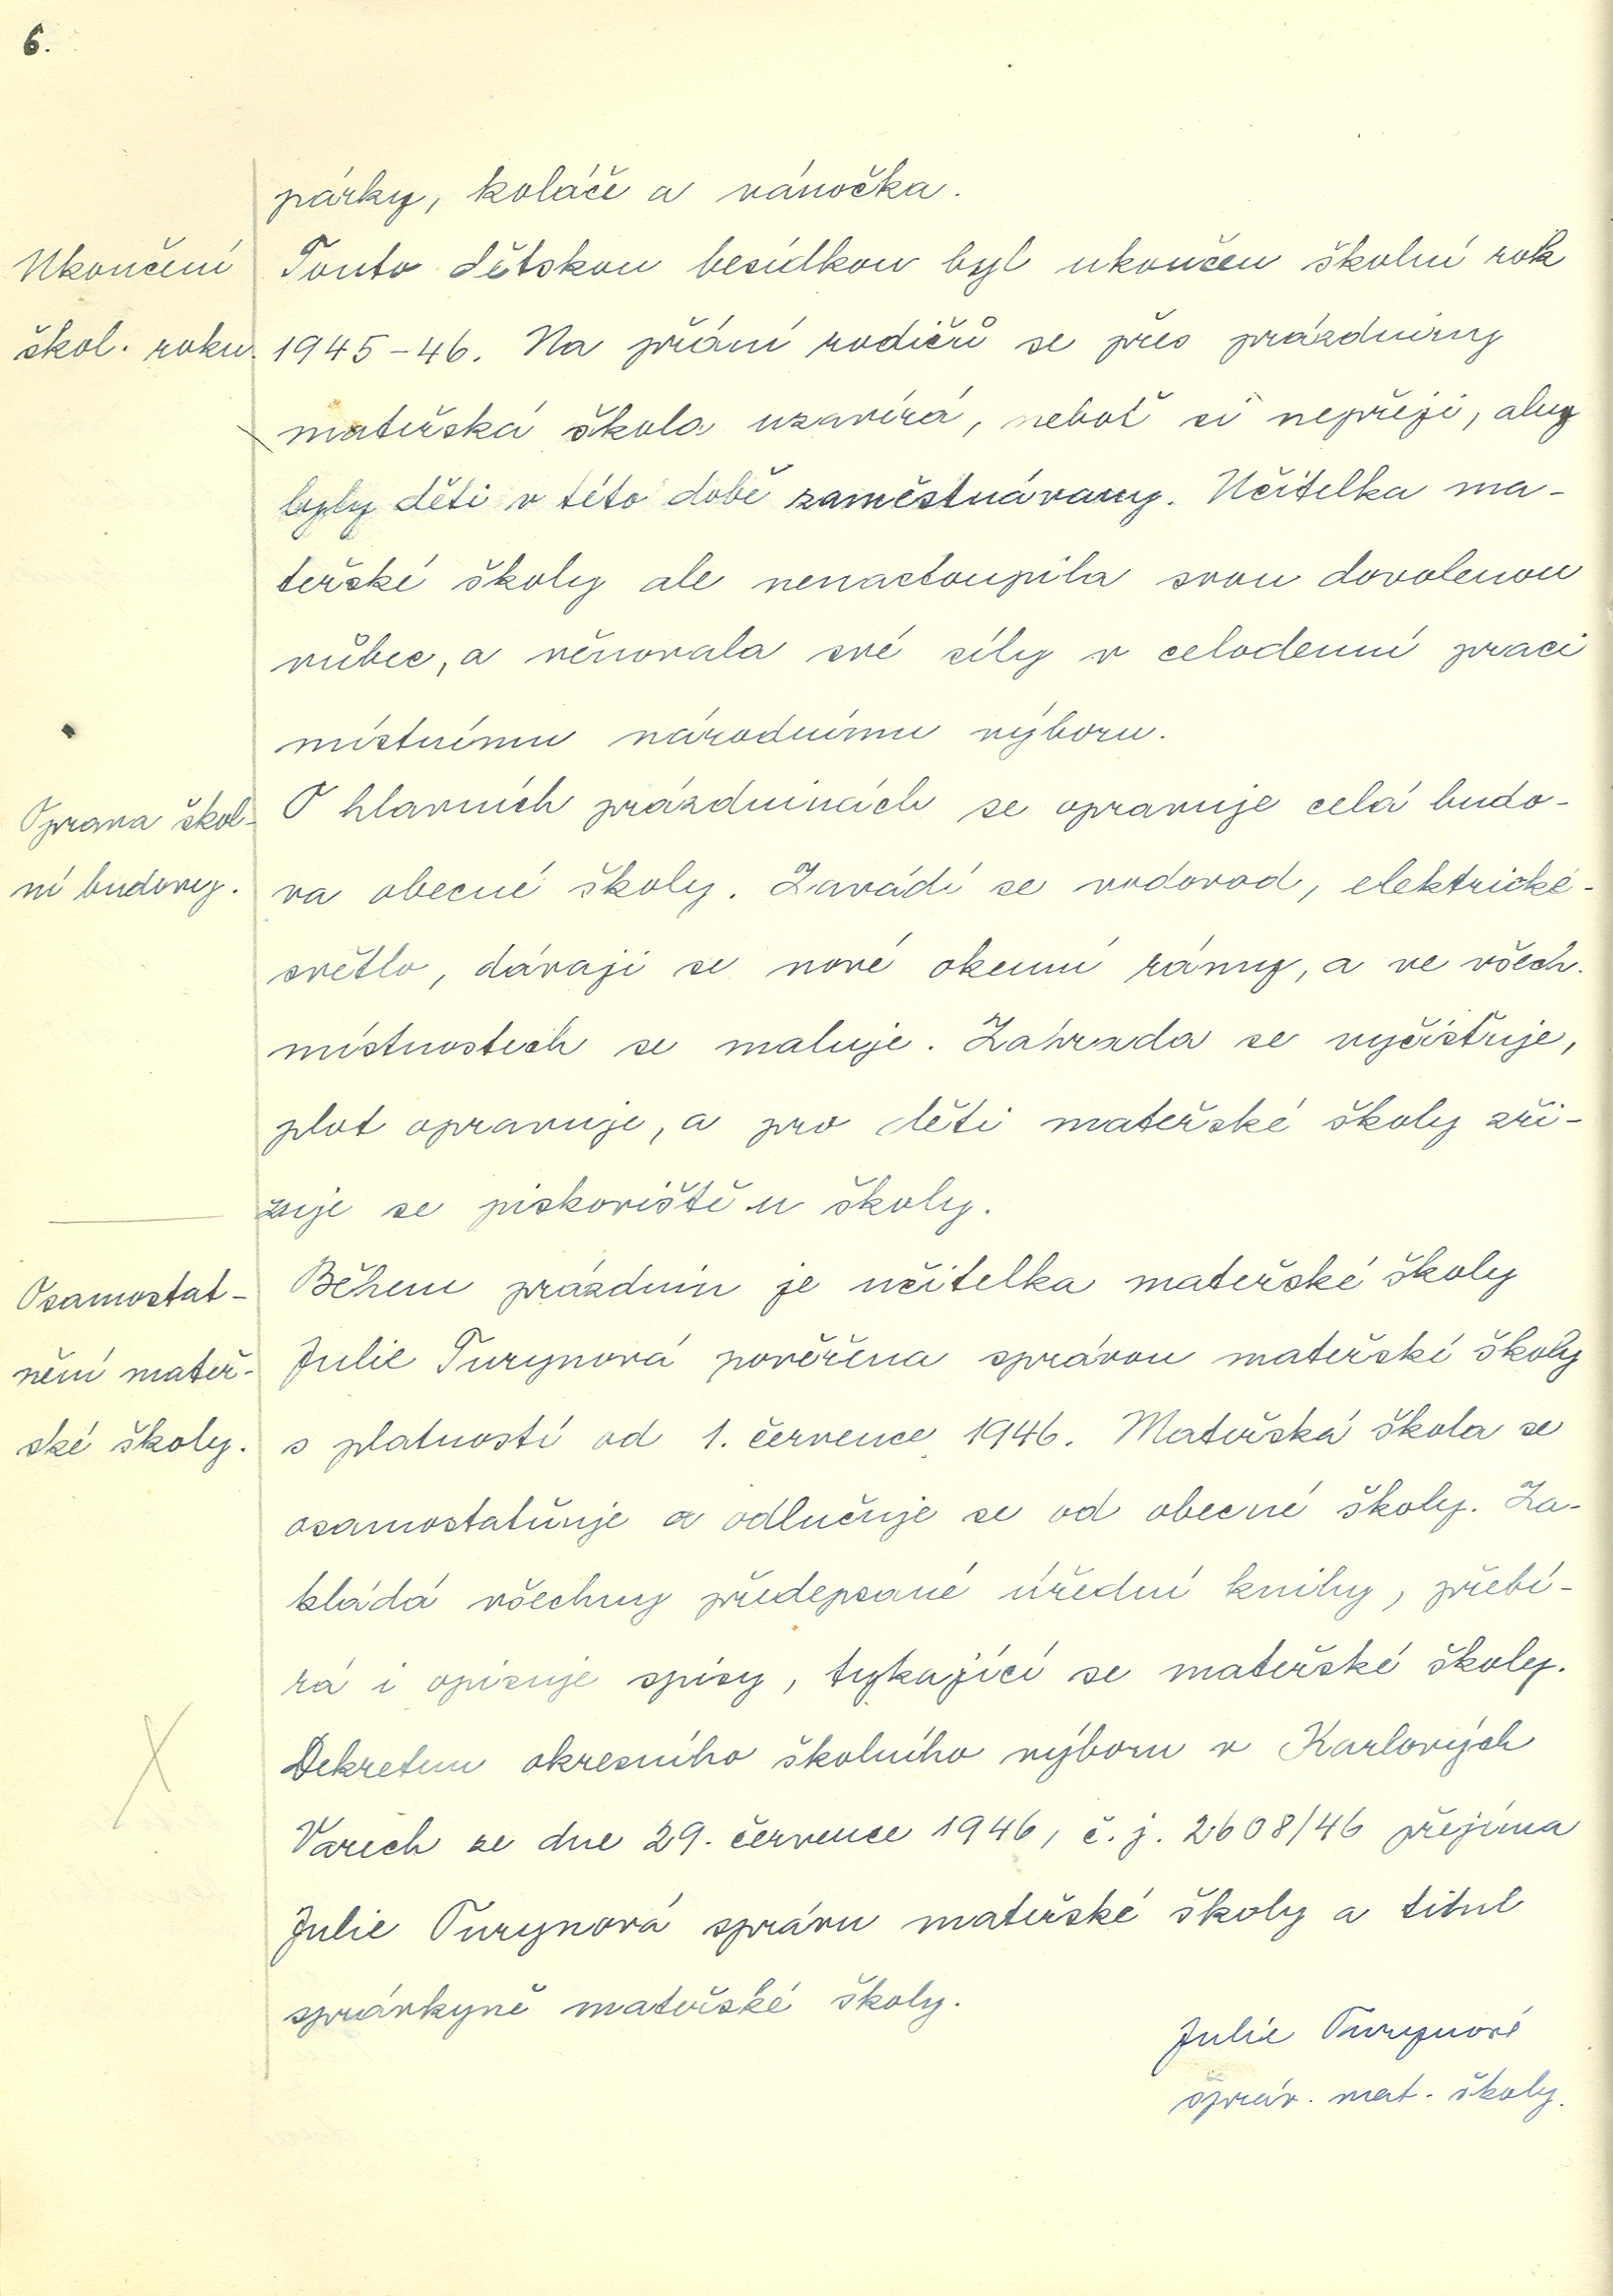 6.
párky, koláče a vánočka.
Ukončení
škol. roku.
Touto dětskou besídkou byl ukončen školní rok
1945-46. Na přání rodičů se přes prázdniny
mateřská škola uzavírá, neboť si nepřejí, aby
byly děti v této době zaměstnávany. Učitelka ma-
teřské školy ale nenastoupila svou dovolenou
vůbec, a věnovala své síly v celodenní praci
místnímu národnímu výboru.
Oprava škol-
ní budovy.
O hlavních prázdninách se opravuje celá budo-
va obecné školy. Zavádí se vodovod, elektrické-
světlo, dávají se nové okenní rámy, a ve všech.
místnostech se maluje. Zahrada se vyčisťuje,
plot opravuje, a pro děti mateřské školy zři-
zuje se piskoviště u školy.
Osamostat-
nění mateř-
ské školy.
Během prázdnin je učitelka mateřské školy
Julie Turynová pověřena správou mateřské školy
s platností od 1. července 1946. Mateřská škola se
osamostatňuje a odlučuje se od obecné školy. Za-
kládá všechny předepsané úřední knihy, přebí-
rá i opisuje spisy, tykající se mateřské školy.
Dekretem okresního školního výboru v Karlových
Varech ze dne 29. července 1946, č. j. 2608/46 přejíma
Julie Turynová správu mateřské školy a titul
správkyně mateřské školy.
Julie Turynová
správ. mat. školy.